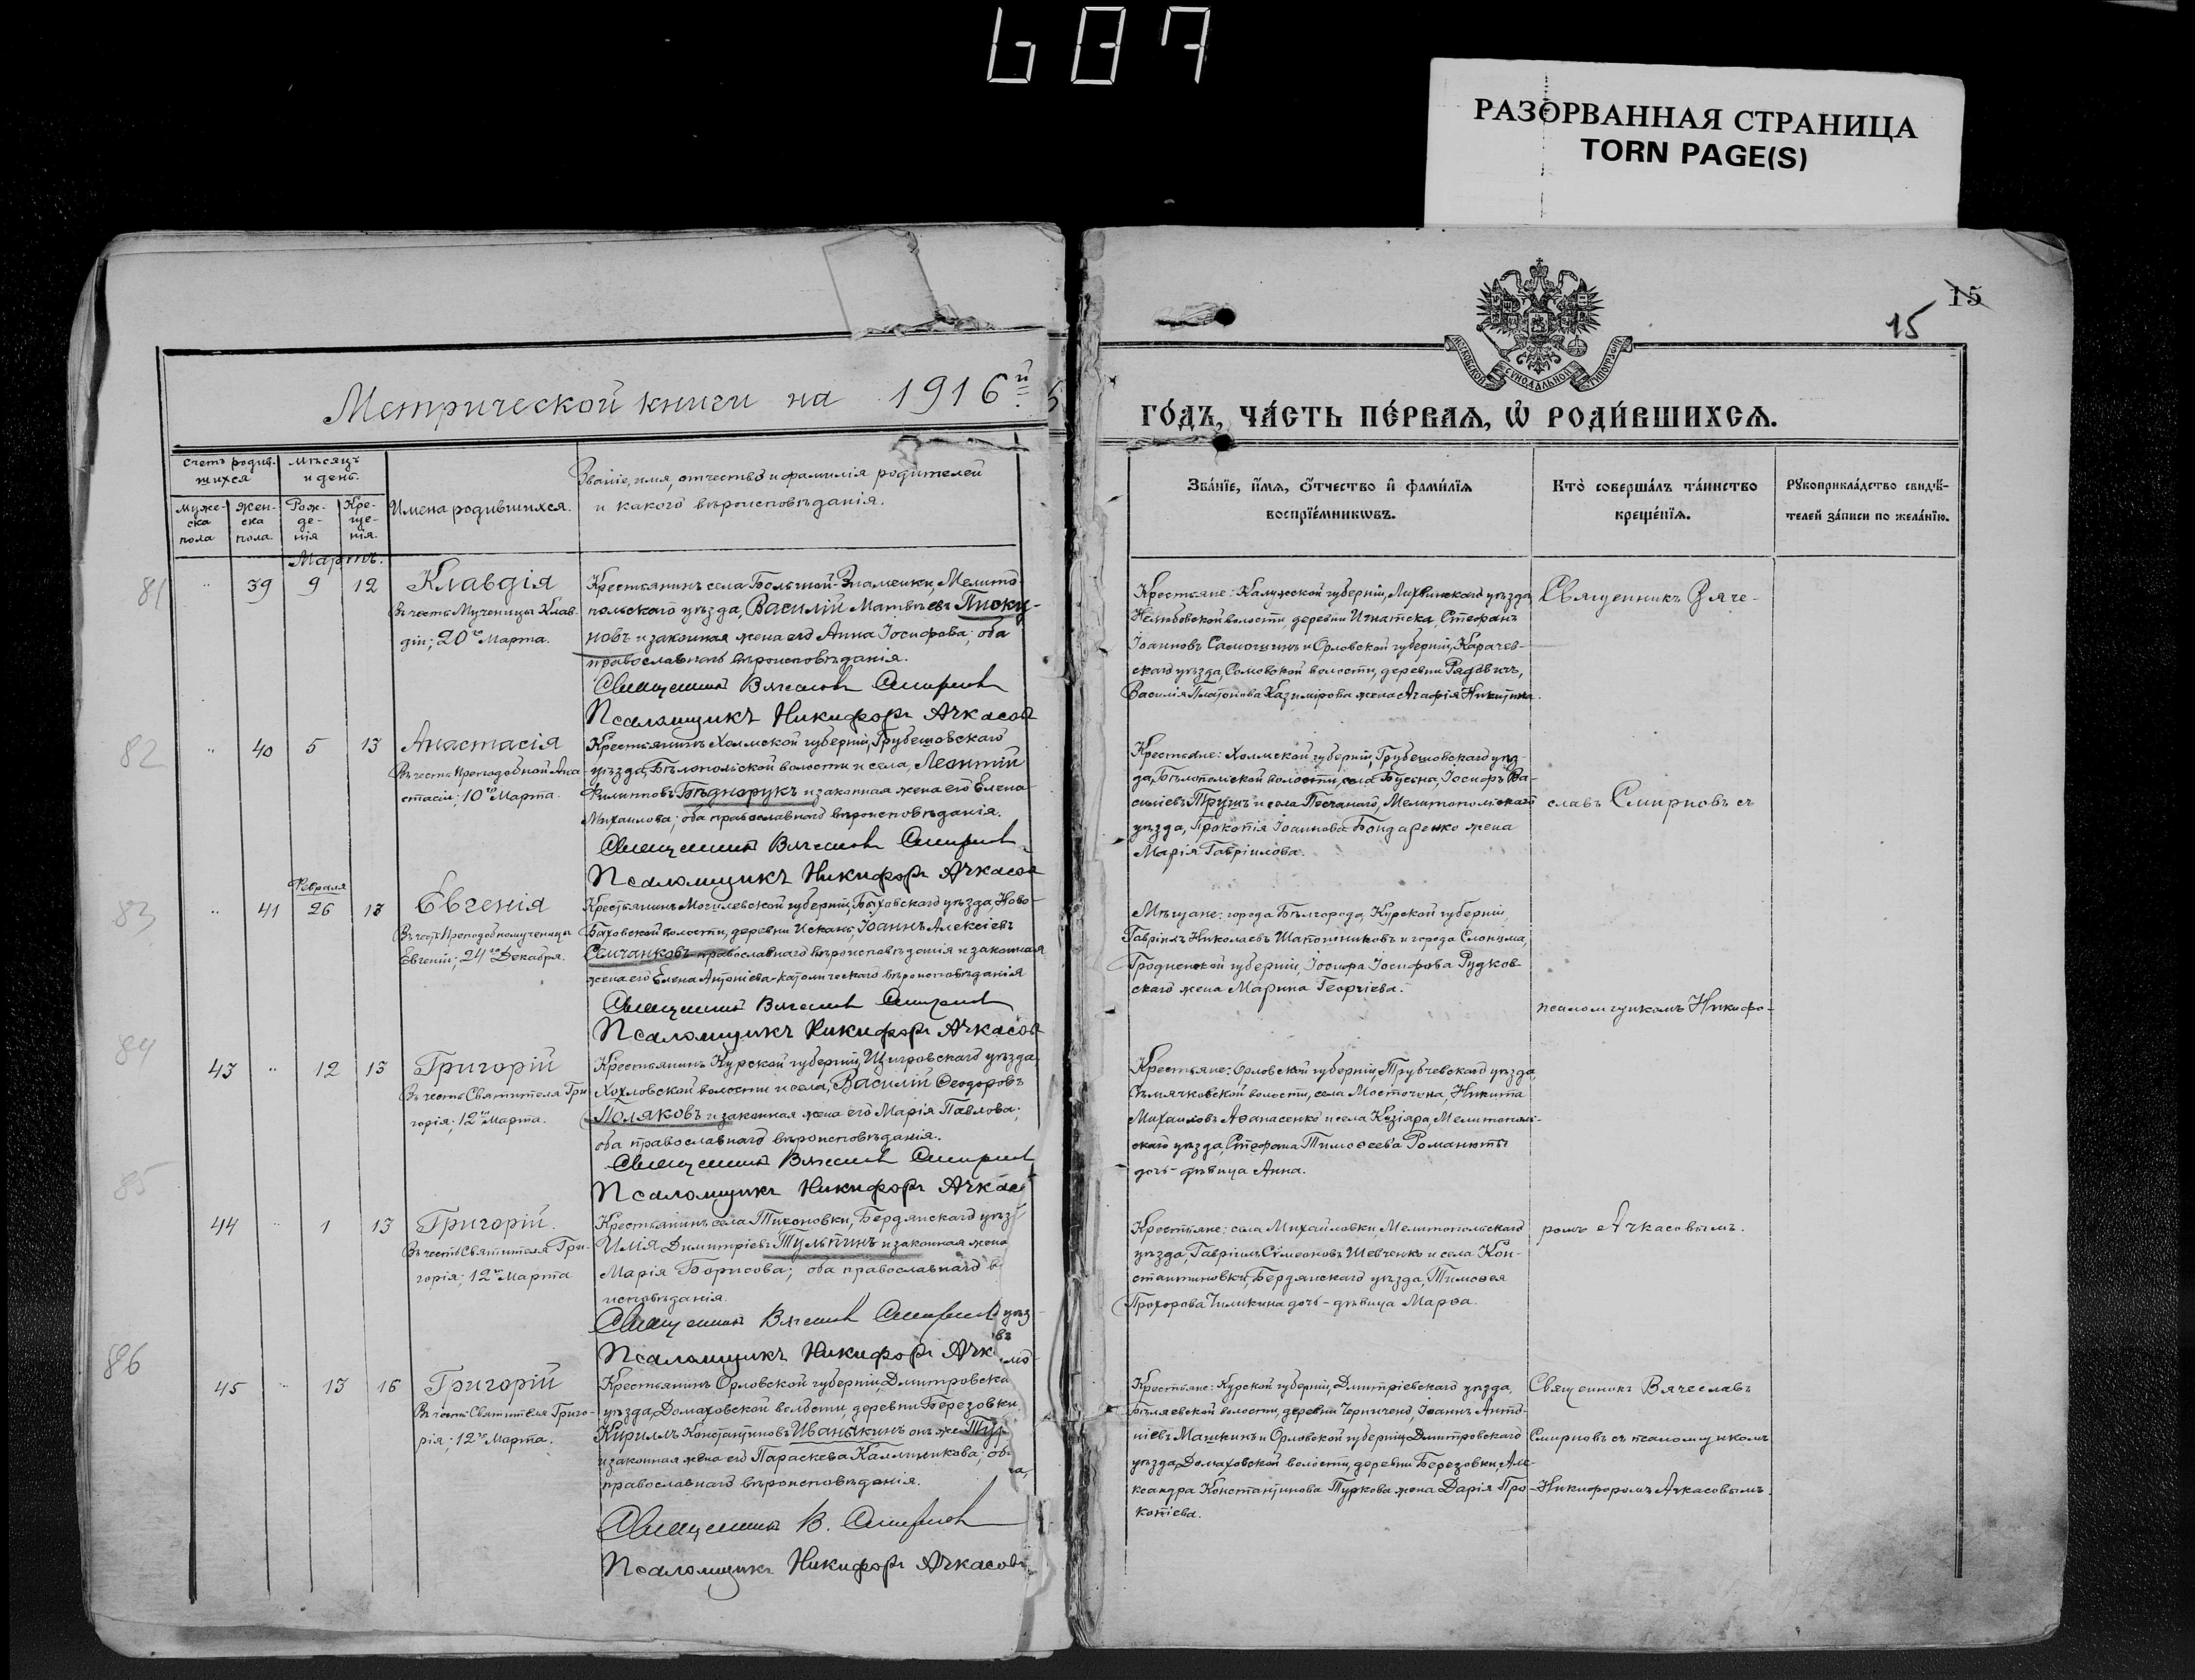 687
РАЗОРВАННАЯ СТРАНИЦА
TORN PAGE(S)
15
15
МОСКОВСКОЙ СѴНОДАЛЬНОЙ ТИПОГРАФІИ
Метрической книги на 1916й
го́дъ, ча́сть пе́рваѧ, ѡ҆ роди́вшихсѧ.
Счетъ родив-
шихся
Мѣсяцъ
и день.
Имена родившихся.
Званіе, имя, отчество и фамилія родителей
и какого вѣроисповѣданія.
муже-
ска
пола
жен-
ска
пола
Рож-
де-
нія
Кре-
ще-
нія.
Зва́нїе, и҆́мѧ, ѻ҆́тчество и҆ фами́лїѧ
воспрїе́мникѡвъ.
Кто̀ соверша́лъ та́инство
креще́нїѧ.
Рꙋкоприкла́дство свидѣ́-
телей за́писи по жела́нїю.
Мартъ.
81
39 9 12
Клавдія
Въ честь Мученицы Клав-
діи; 20го Марта.
Крестьянинъ села Большой-Знаменки, Мелито-
польскаго уѣзда, Василій Матвѣевъ Писку-
новъ и законная жена его Анна Іосифова; оба
православнаго вѣроисповѣданія.
Священникъ Вячеславъ Смирновъ
Псаломщикъ Никифоръ Ачкасовъ
Крестьяне: Калужской губерніи, Лихвинскаго уѣзда
волости, деревни Стефанъ
Іоанновъ и Орловской губерніи, Карачев-
скаго уѣзда, волости, деревни
Василія Платонова Казимірова жена Агафія Никитина.
Священникъ Вяче-
82
40 5 13
Анастасія
Въ честь Преподобной Ана-
стасіи; 10го Марта.
Крестьянинъ Холмской губерніи, Грубешовскаго
уѣзда, Бѣлопольской волости и села, Леонтій
Филипповъ Бѣднорукъ и законная жена его Елена
Михаилова; оба православнаго вѣроисповѣданія.
Священникъ Вячеславъ Смирновъ
Псаломщикъ Никифоръ Ачкасовъ
Крестьяне: Холмской губерніи, Грубешовскаго уѣз-
да, Бѣлопольской волости, села Іосифъ Ва-
силіевъ и села Песчанаго, Мелитопольскаго
уѣзда, Прокопія Іоаннова Бондаренко жена
Марія Гавріилова.
славъ Смирновъ съ
83
Февраля
41 26 13
Евгенія
Въ честь Преподобномученицы
Евгеніи; 24го Декабря.
Крестьянинъ Могилевской губерніи, Быховскаго уѣзда, Ново-
Быховской волости, деревни Искань, Іоаннъ Алексіевъ
Семчанковъ православнаго вѣроисповѣданія и законная
жена его Елена Антоніева католическаго вѣроисповѣданія
Священникъ Вячеславъ Смирновъ
Псаломщикъ Никифоръ Ачкасовъ
Мѣщане: города Бѣлгорода, Курской губерніи,
Гавріилъ Николаевъ Шапошниковъ и города Слонима,
Гродненской губерніи, Іосифа Іосифова Рудков-
скаго жена Марина Георгіева.
псаломщикомъ Никифо-
84
43 12 13
Григорій
Въ честь Святителя Гри
горія; 12го Марта.
Крестьянинъ Курской губерніи, Щигровскаго уѣзда,
Хохловской волости и села, Василій Ѳеодоровъ
Поляковъ и законная жена его Марія Павлова;
оба православнаго вѣроисповѣданія.
Священникъ Вячеславъ Смирновъ
Псаломщикъ Никифоръ Ачкас
Крестьяне: Орловской губерніи, Трубчевскаго уѣзда,
волости, села Никита
Михаиловъ Аѳанасенко и села Кизіяра, Мелитополь-
скаго уѣзда, Стефана Тимоѳеева Романюты
дочь-дѣвица Анна.
85
44 1 13
Григорій.
Въ честь Святителя Гри-
горія; 12го Марта
Крестьянинъ села Тихоновки, Бердянскаго уѣз
Илія Димитріевъ Тульпинъ и законная жена
Марія Борисова; оба православнаго в
исповѣданія.
Священникъ Вячеславъ Смирновъ
Псаломщикъ Никифоръ Ачк
Крестьяне: села Михайловки, Мелитопольскаго
уѣзда, Гавріилъ Сѵмеоновъ Шевченко и села Кон-
стантиновки, Бердянскаго уѣзда, Тимоѳея
Прохорова Чиликина дочь-дѣвица Марѳа.
ромъ Ачкасовымъ.
86
45 13 16
Григорій
Въ честь Святителя Григо-
рія; 12го Марта.
Крестьянинъ Орловской губерніи, Дмитровска
уѣзда, Домаховской волости, деревни Березовки,
Кириллъ Константиновъ Иванькинъ онъ же Тур
и законная жена его Параскева Каллиникова; оба
православнаго вѣроисповѣданія.
Священникъ В. Смирновъ
Псаломщикъ Никифоръ Ачкасовъ
Крестьяне: Курской губерніи, Дмитріевскаго уѣзда,
Бѣляевской волости, деревни Іоаннъ Анто-
ніевъ Машкинъ и Орловской губерніи, Дмитровскаго
уѣзда, Домаховской волости, деревни Березовки, Але-
ксандра Константинова Туркова жена Дарія Про-
копіева.
Священникъ Вячеславъ
Смирновъ съ псаломщикомъ
Никифоромъ Ачкасовымъ.